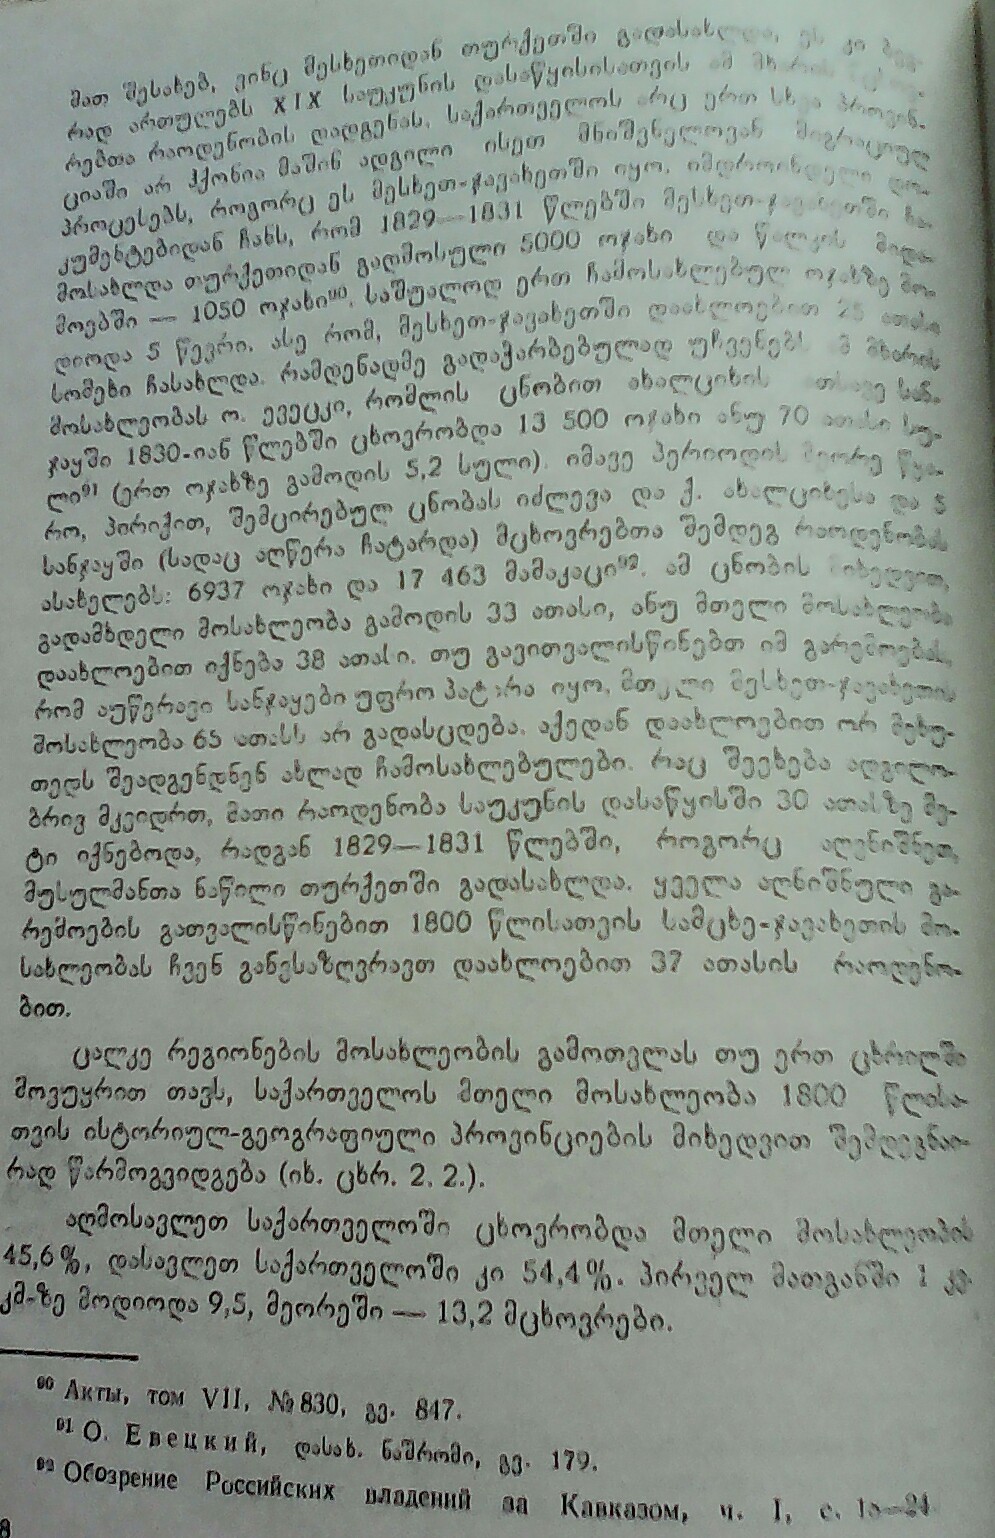 მათ შესახებ, ვინც მესხეთიდან თურქეთში გადასახლდა, ეს კი
რად ართულებს XIX საუკუნის დასაწყისისათვის ამ მხარის
რებთა რაოდენობის დადგენას. საქართველოს არც ერთ სხვა პროვინ-
ციაში არ ჰქონია მაშინ ადგილი ისეთ მნიშვნელოვან მიგრაციულ
პროცესებს, როგორც ეს მესხეთ-ჯავახეთში იყო. იმდროინდელი დო-
კუმენტებიდან ჩანს, რომ 1829—1831 წლებში მესხეთ-ჯავახეთში ჩა-
მოსახლდა თურქეთიდან გადმოსული 5000 ოჯახი და წალკის მიდა-
მოებში — 1050 ოჯახი⁹⁰. საშუალოდ ერთ ჩამოსახლებულ ოჯახზე მო-
დიოდა 5 წევრი. ასე რომ, მესხეთ-ჯავახეთში დაახლოებით 25 ათასი
სომეხი ჩასახლდა. რამდენადმე გადაჭარბებულად უჩვენებს მხარის
მოსახლეობას ო. ევეცკი, რომლის ცნობით ახალციხის სან-
ჯაყში 1830-იან წლებში ცხოვრობდა 13 500 ოჯახი ანუ 70 ათასი სუ-
ლი⁹¹ (ერთ ოჯახზე გამოდის 5,2 სული). იმავე პერიოდის მეორე წყა-
რო, პირიქით, შემცირებულ ცნობას იძლევა და ქ. ახალციხესა და 5
სანჯაყში (სადაც აღწერა ჩატარდა) მცხოვრებთა შემდეგ რაოდენობას
ასახელებს: 6937 ოჯახი და 17 463 მამაკაცი⁹². ამ ცნობის მიხედვით,
გადამხდელი მოსახლეობა გამოდის 33 ათასი, ანუ მთელი მოსახლეობა
დაახლოებით იქნება 38 ათასი. თუ გავითვალისწინებთ იმ გარემოებას,
რომ აუწერავი სანჯაყები უფრო პატარა იყო, მთელი მესხეთ-ჯავახეთის
მოსახლეობა 65 ათასს არ გადასცდება. აქედან დაახლოებით ორ მეხუ-
თედს შეადგენდნენ ახლად ჩამოსახლებულები. რაც შეეხება ადგილო-
ბრივ მკვიდრთ, მათი რაოდენობა საუკუნის დასაწყისში 30 ათასზე მე-
ტი იქნებოდა, რადგან 1829—1831 წლებში, როგორც აღვნიშნეთ,
მუსულმანთა ნაწილი თურქეთში გადასახლდა. ყველა აღნიშნული გა-
რემოების გათვალისწინებით 1800 წლისათვის სამცხე-ჯავახეთის მო-
სახლეობას ჩვენ განვსაზღვრავთ დაახლოებით 37 ათასის რაოდენო-
ბით.
ცალკე რეგიონების მოსახლეობის გამოთვლას თუ ერთ ცხრილში
მოვუყრით თავს, საქართველოს მთელი მოსახლეობა 1800 წლისა-
თვის ისტორიულ-გეოგრაფიული პროვინციების მიხედვით შემდეგნაი-
რად წარმოგვიდგება (იხ. ცხრ. 2. 2.).
აღმოსავლეთ საქართველოში ცხოვრობდა მთელი მოსახლეობის
45,6%, დასავლეთ საქართველოში კი 54,4%. პირველ მათგანში 1 კვ.
კმ-ზე მოდიოდა 9,5, მეორეში — 13,2 მცხოვრები.
⁹⁰ Акты, том VII, №830, გვ. 847.
⁹¹ О. Евецкий, დასახ. ნაშრომი, გვ. 179.
⁹² Обозрение Российских владений за Кавказом, ч. I, с.
8